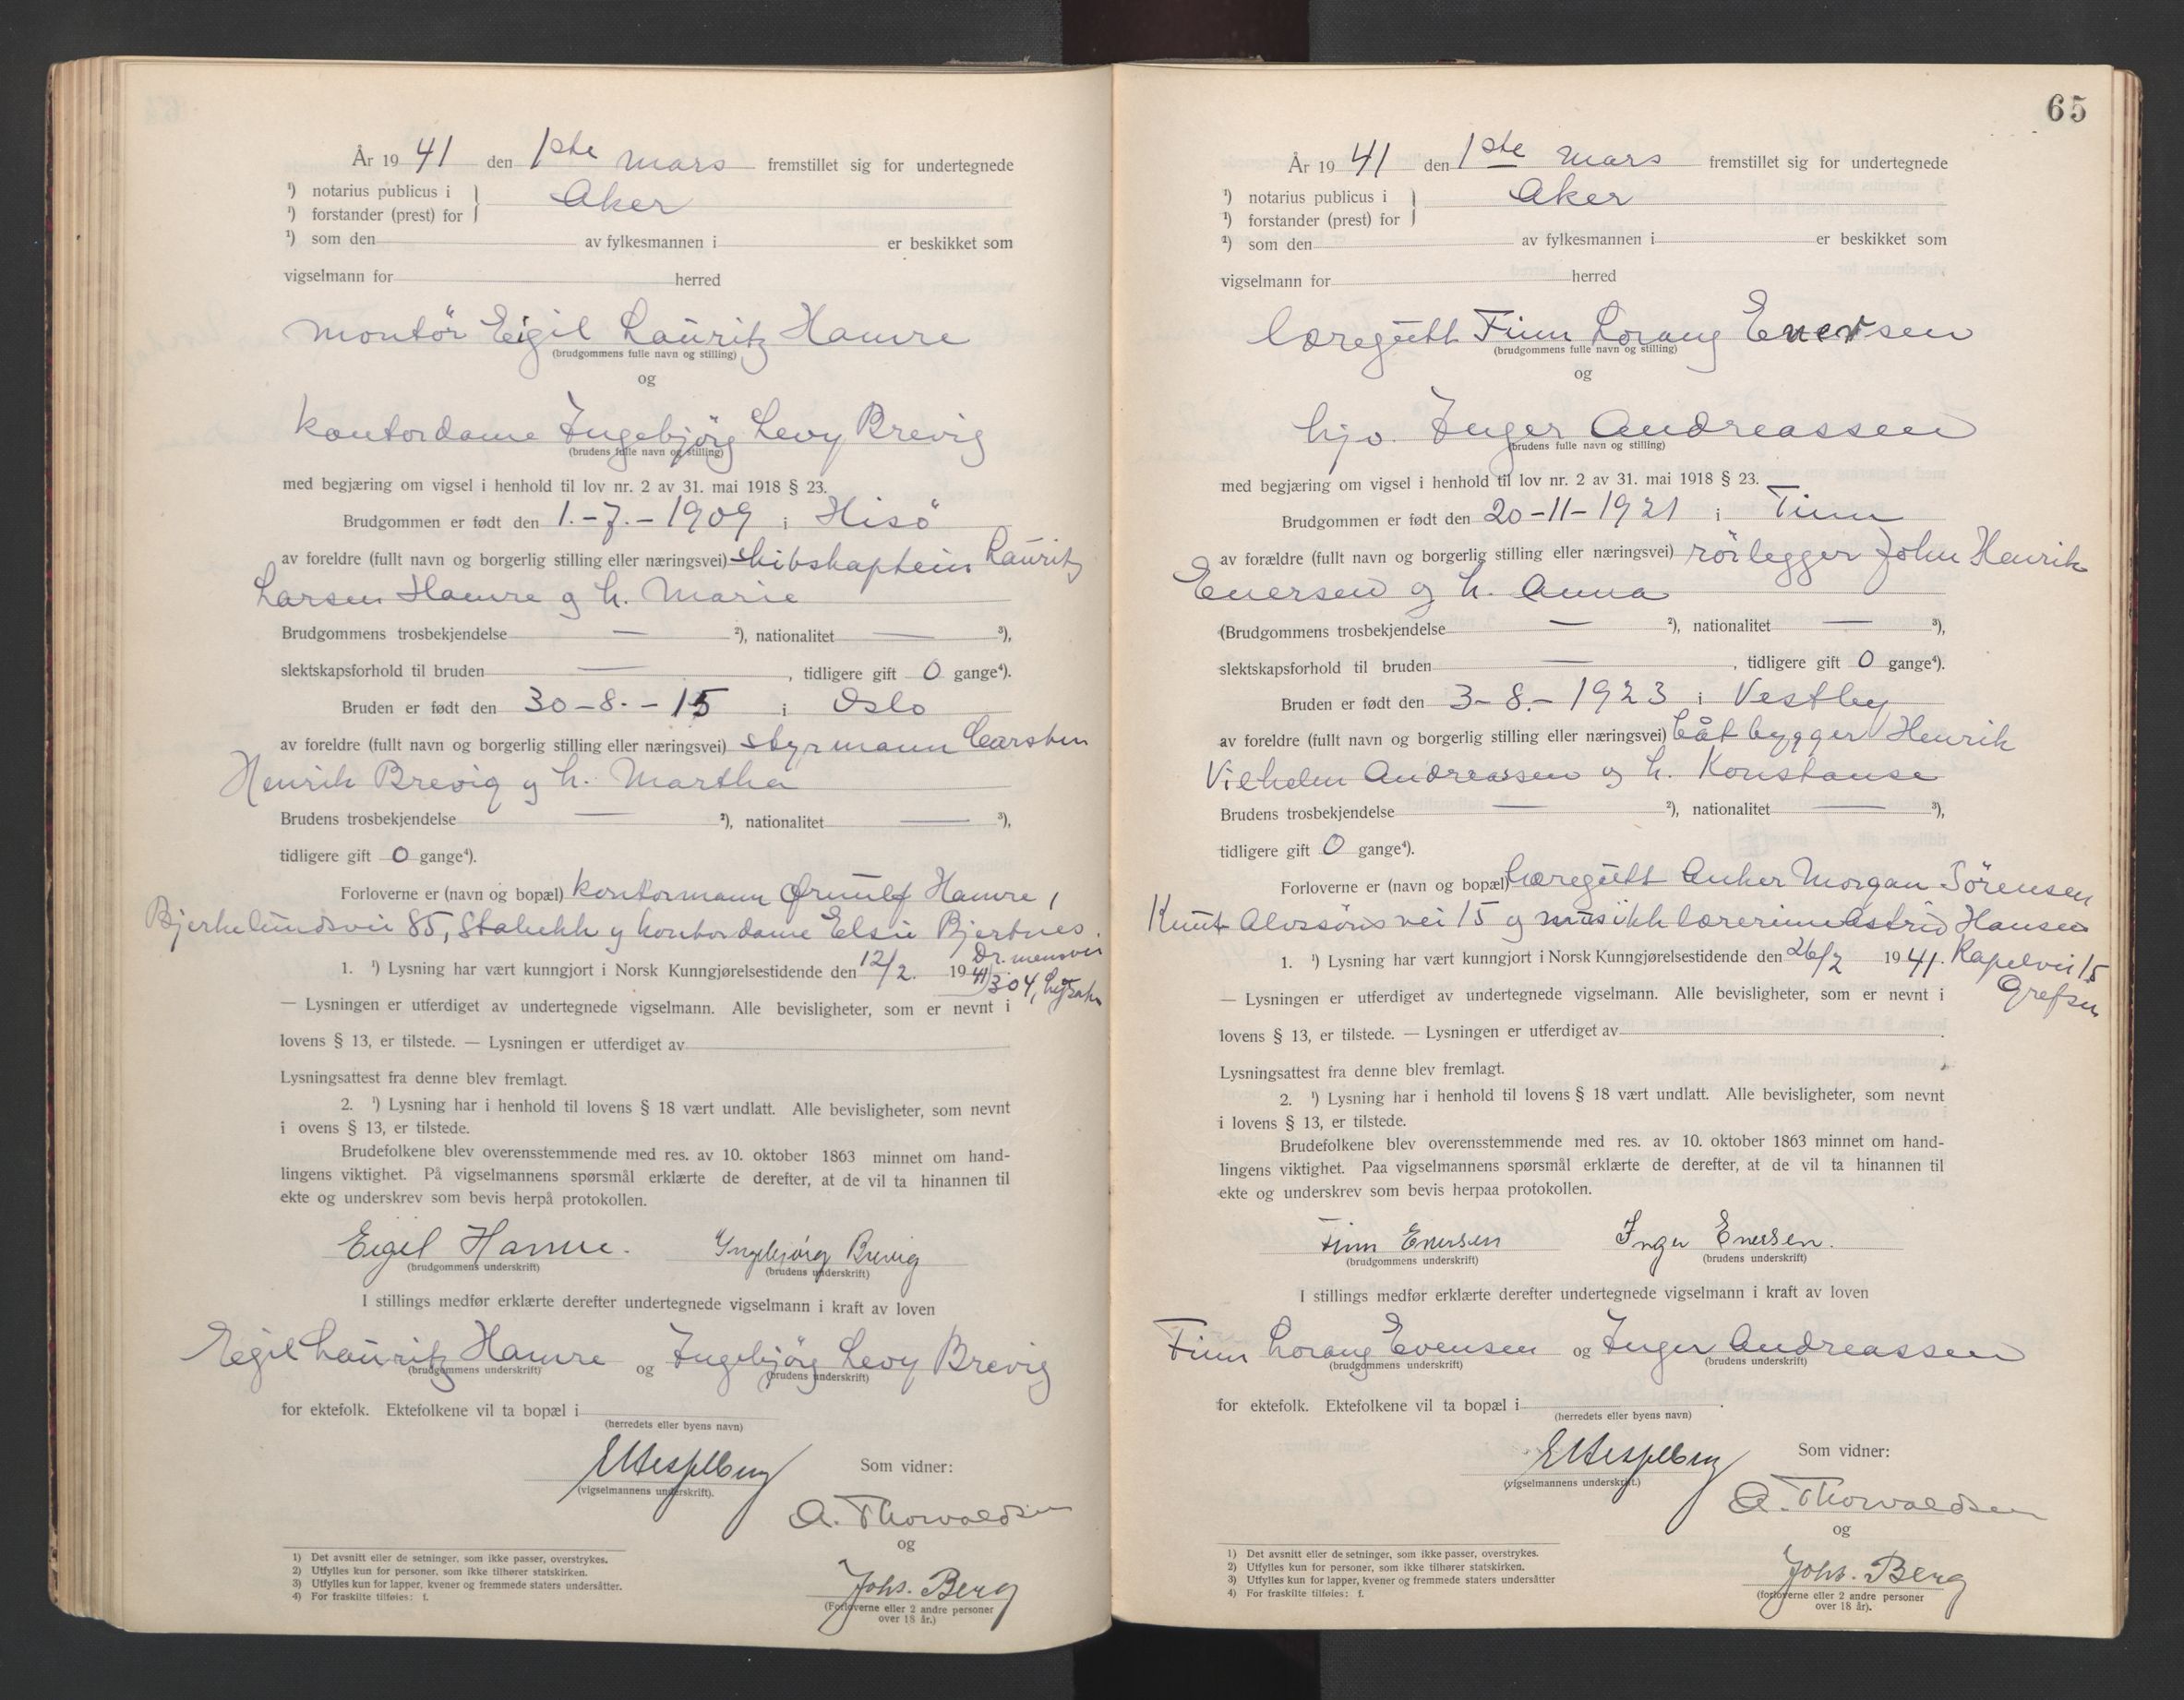 År 1941 den 1ste mars fremstillet sig for undertegnede
¹) notarius publicus i } Aker
¹) forstander (prest) for
¹) som den av fylkesmannen i er beskikket som
vigselmann for herred
montör Eigil Lauritz Hamre
(brudgommens fulle navn og stilling)
og
kontordame Ingebjörg Levy Brevig
(brudens fulle navn og stilling)
med begjæring om vigsel i henhold til lov nr. 2 av 31. mai 1918 § 23.
Brudgommen er født den 1.-7.-1909 i Hisö
av foreldre (fullt navn og borgerlig stilling eller næringsvei) skibskaptein Lauritz
Larsen Hamre og h. Marie
Brudgommens trosbekjendelse — ²), nationalitet — ³),
slektskapsforhold til bruden — , tidligere gift 0 gange⁴).
Bruden er født den 30-8.-15 i Oslo
av foreldre (fullt navn og borgerlig stilling eller næringsvei) styrmann Carsten
Henrik Brevig og h. Martha
Brudens trosbekjendelse — ²), nationalitet — ³),
tidligere gift 0 gange⁴).
Forloverne er (navn og bopæl) kontormann Ørnulf Hamre,
Bjerkelundsvei 85, Stabekk og kontordame Elsie Bjertnes.
Dr.
1. ¹) Lysning har vært kunngjort i Norsk Kunngjørelsestidende den 12/2. 1941 304,
— Lysningen er utferdiget av undertegnede vigselmann. Alle bevisligheter, som er nevnt i
lovens § 13, er tilstede. — Lysningen er utferdiget av
Lysningsattest fra denne blev fremlagt.
2. ¹) Lysning har i henhold til lovens § 18 vært undlatt. Alle bevisligheter, som nevnt
i ovens § 13, er tilstede.
Brudefolkene blev overensstemmende med res. av 10. oktober 1863 minnet om hand-
lingens viktighet. På vigselmannens spørsmål erklærte de derefter, at de vil ta hinannen til
ekte og underskrev som bevis herpå protokollen.
Eigil Hamre. Ingebjörg Brevig
(brudgommens underskrift) (brudens underskrift)
I stillings medfør erklærte derefter undertegnede vigselmann i kraft av loven
Eigil Lauritz Hamre og Ingebjörg Levy Brevig
(brudgommens underskrift) (brudens underskrift)
for ektefolk. Ektefolkene vil ta bopæl i
(herredets eller byens navn)
Som vidner:
(vigselmannens underskrift).
A. Thorvaldsen
og
Johs. Berg
(Forloverne eller 2 andre personer
over 18 år.)
1) Det avsnitt eller de setninger, som ikke passer, overstrykes.
2) Utfylles kun for personer, som ikke tilhører statskirken.
3) Utfylles kun for lapper, kvener og fremmede staters undersåtter.
4) For fraskilte tilføies: f.
65
År 1941 den 1ste mars fremstillet sig for undertegnede
¹) notarius publicus i } Aker
¹) forstander (prest) for
¹) som den av fylkesmannen i er beskikket som
vigselmann for herred
læregutt Finn Lorang Enersen
(brudgommens fulle navn og stilling)
og
hjv. Inger Andreassen
(brudens fulle navn og stilling)
med begjæring om vigsel i henhold til lov nr. 2 av 31. mai 1918 § 23.
Brudgommen er født den 20-11-1921 i Tinn
av forældre (fullt navn og borgerlig stilling eller næringsvei) rörlegger John Henrik
Enersen og h. Anna
(Brudgommens trosbekjendelse — ²), nationalitet — ³),
slektskapsforhold til bruden — , tidligere gift 0 gange⁴).
Bruden er født den 3-8.-1923 i Vestby
av foreldre (fullt navn og borgerlig stilling eller næringsvei) båtbygger Henrik
Vilhelm Andreassen og h. Konstanse
Brudens trosbekjendelse — ²), nationalitet — ³),
tidligere gift 0 gange⁴).
Forloverne er (navn og bopæl) Læregutt Anker Morgan Sörensen
Knut Alvssöns vei 15 og musikklærerinne Astrid Hansen
1. ¹) Lysning har vært kunngjort i Norsk Kunngjørelsestidende den 26/2 1941. Kapelvei 15
Grefsen
— Lysningen er utferdiget av undertegnede vigselmann. Alle bevisligheter, som er nevnt i
lovens § 13, er tilstede. — Lysningen er utferdiget av .
Lysningsattest fra denne blev fremlagt.
2. ¹) Lysning har i henhold til lovens § 18 vært undlatt. Alle bevisligheter, som nevnt
i lovens § 13, er tilstede.
Brudefolkene blev overensstemmende med res. av 10. oktober 1863 minnet om hand-
lingens viktighet. Paa vigselmannens spørsmål erklærte de derefter, at de vil ta hinannen til
ekte og underskrev som bevis herpaa protokollen.
Finn Enersen Inger Enersen.
(brudgommens underskrift) (brudens underskrift)
I stillings medfør erklærte derefter undertegnede vigselmann i kraft av loven
Finn Lorang Evensen og Inger Andreassen
(brudgommens underskrift) (brudens underskrift)
for ektefolk. Ektefolkene vil ta bopæl i .
(herredets eller byens navn)
Som vidner:
(vigselmannens underskrift.)
A. Thorvaldsen
og
Johs. Berg
(forloverne eller 2 andre personer
over 18 år).
1) Det avsnitt eller de setninger, som ikke passer, overstrykes.
2) Utfylles kun for personer, som ikke tilhører statskirken.
3) Utfylles kun for lapper, kvener og fremmede staters undersåtter
4) For fraskilte tilføies: f.